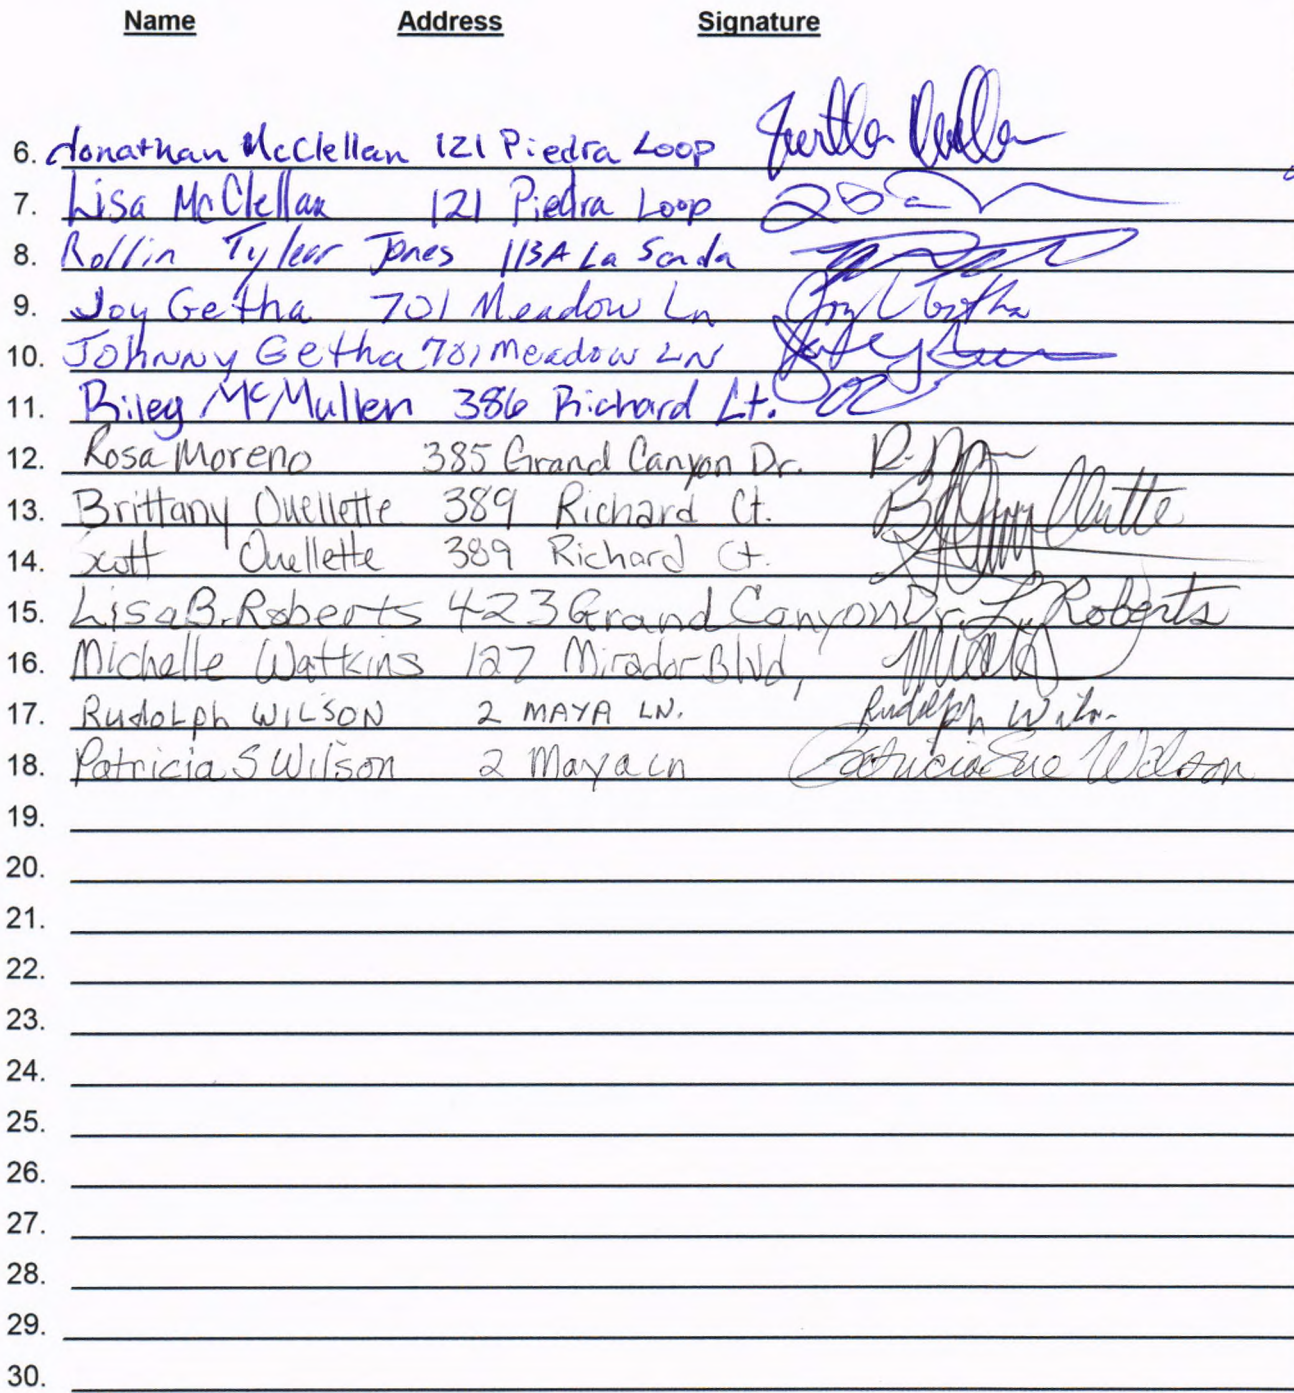 Name Address Signature
6. Jonathan McClellan 121 Piedra Loop
7. Lisa McClellan 121 Piedra Loop
8. Rollin Tylear Jones 113A La Senda
9. Joy Getha 701 Meadow Ln
10. Johnny Getha 701 Meadow LN
11. Riley McMullen 386 Richard Ct.
12. Rosa Moreno 385 Grand Canyon Dr.
13. Brittany Ouellette 389 Richard Ct.
14. Scott Ouellette 389 Richard Ct.
15. Lisa B. Roberts 423 Grand Canyon Dr. L. Roberts
16. Michelle Watkins 127 Mirador Blvd,
17. Rudolph WILSON 2 MAYA LN. Rudolph Wilson
18. Patricia S Wilson 2 Maya Ln Patricia Sue Wilson
19.
20.
21.
22.
23.
24.
25.
26.
27.
28.
29.
30.